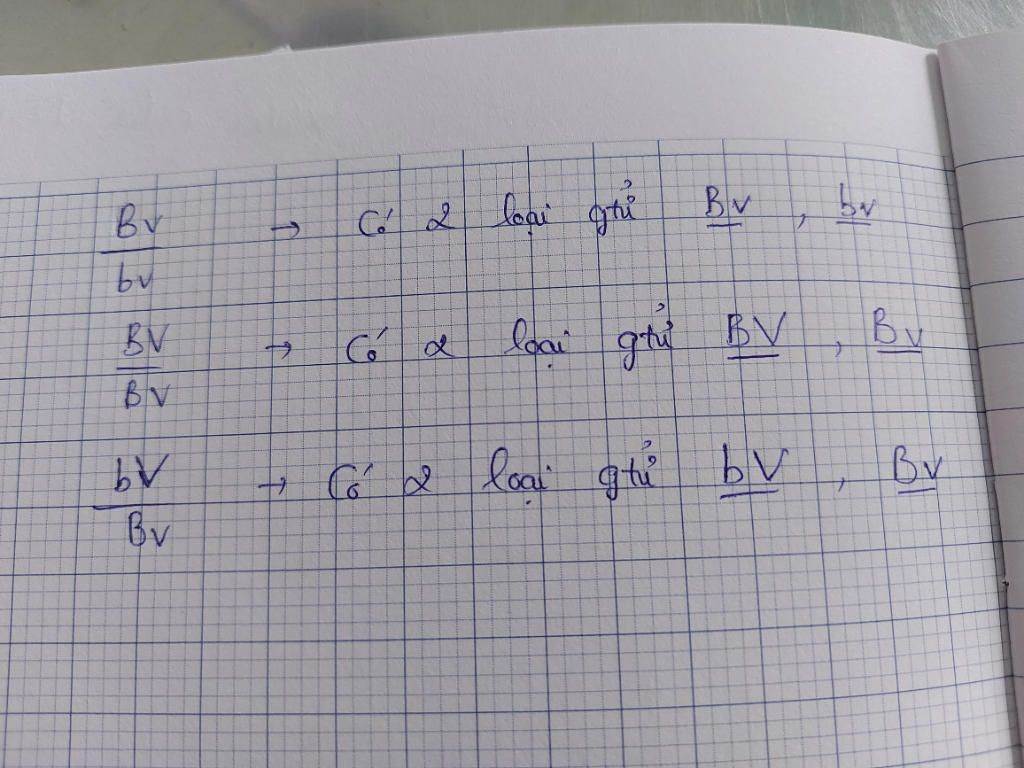 Bv/bv → Có 2 loại gtử Bv , bv
BV/Bv → Có 2 loại gtử BV , Bv
bV/Bv → Có 2 loại gtử bV , Bv